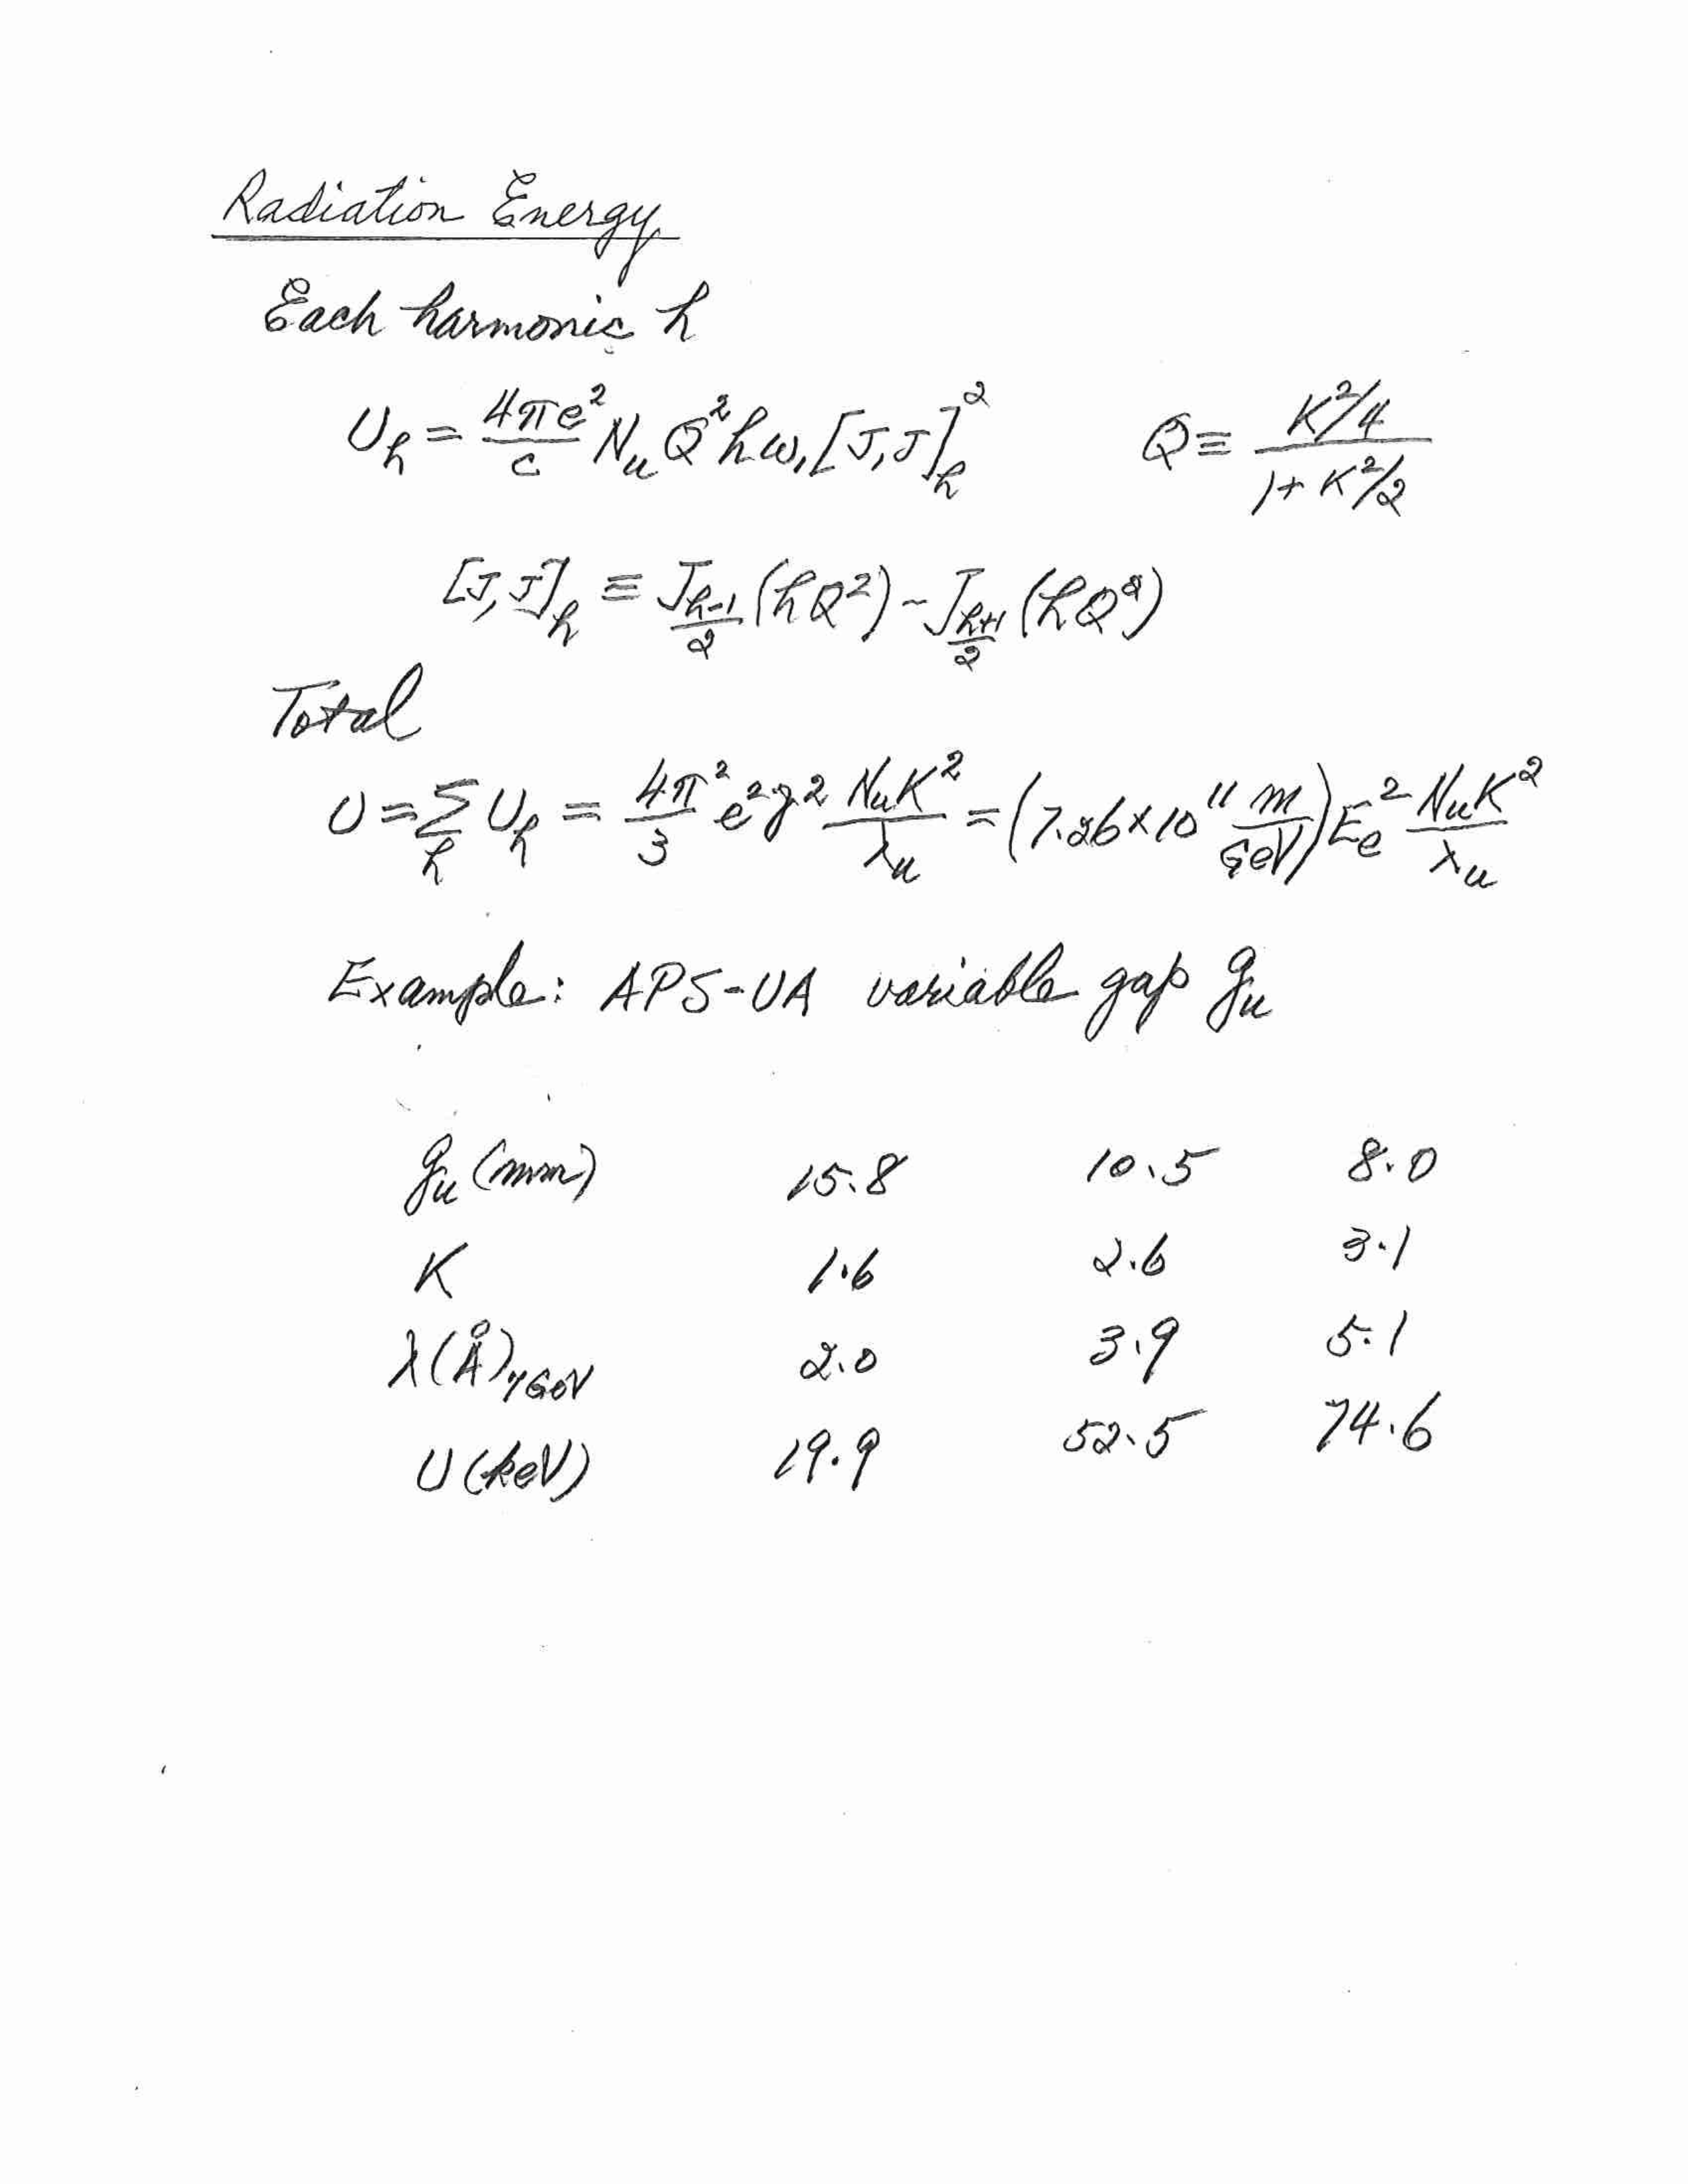 Radiation Energy
Each harmonic h
U_h = \frac{4πe^2}{c} N_u Q^2 h ω_1 [J,J]_h^2    Q ≡ \frac{K^2/4}{1+K^2/2}
[J,J]_h ≡ J_{\frac{h-1}{2}}(hQ^2) - J_{\frac{h+1}{2}}(hQ^2)
Total
U = \sum_h U_h = \frac{4π^2}{3} e^2 γ^2 \frac{N_u K^2}{λ_u} = (7.26×10^{11} \frac{m}{GeV}) E_e^2 \frac{N_u K^2}{λ_u}
Example: APS-UA variable gap g_u
g_u (mm) 15.8 10.5 8.0
K 1.6 2.6 3.1
λ(Å)_{7GeV} 2.0 3.9 5.1
U (keV) 19.9 52.5 74.6